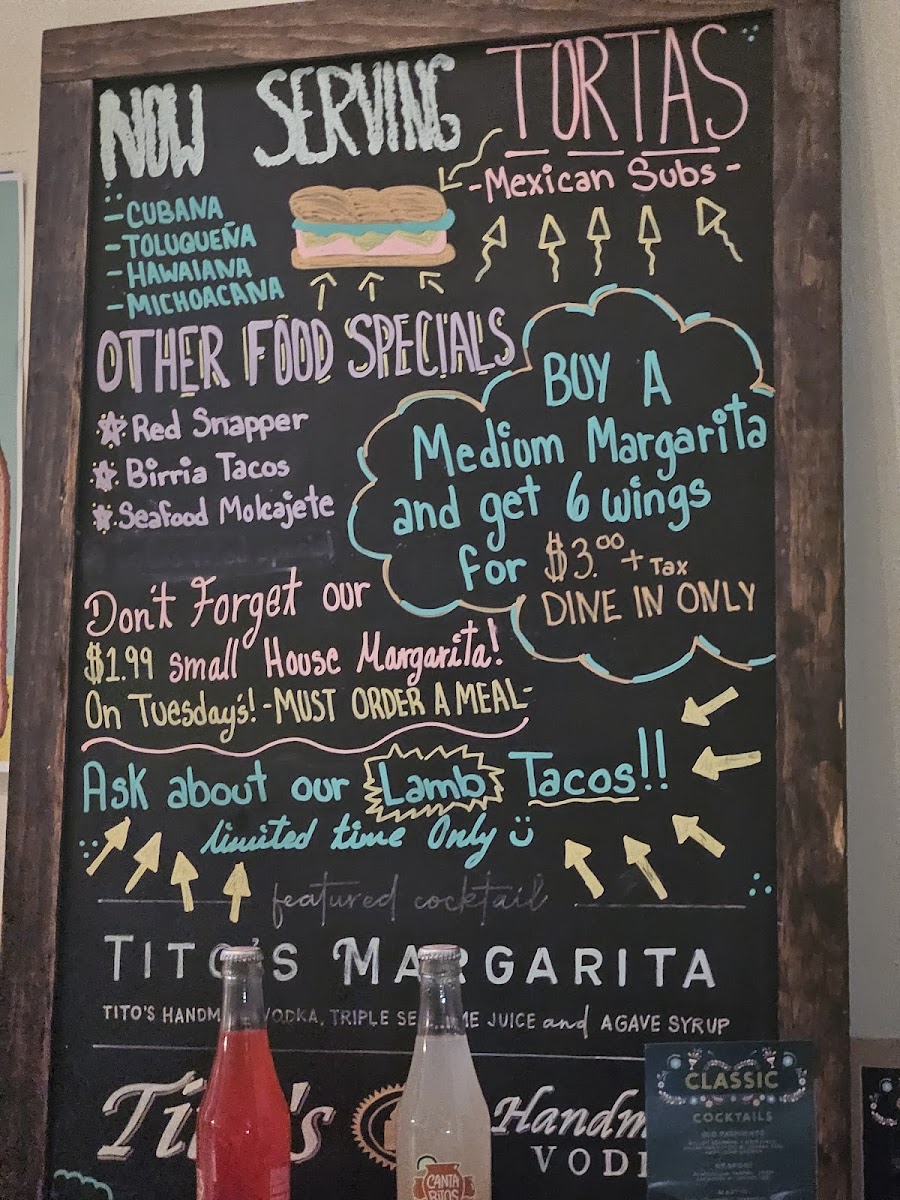 NOW SERVING TORTAS
-Mexican Subs-
-CUBANA
-TOLUQUEÑA
-HAWAIANA
-MICHOACANA
OTHER FOOD SPECIALS
Red Snapper
Birria Tacos
Seafood Molcajete
BUY A
Medium Margarita
and get 6 wings
for $3.00 + Tax
DINE IN ONLY
Don't Forget our
$1.99 small House Margarita!
On Tuesday's! -MUST ORDER A MEAL-
Ask about our Lamb Tacos!!
limited time Only
featured cocktail
TITO'S MARGARITA
TITO'S HANDM VODKA, TRIPLE SE ME JUICE and AGAVE SYRUP
Tito's Handm
VOD
CANTA
RITOS
CLASSIC
COCKTAILS